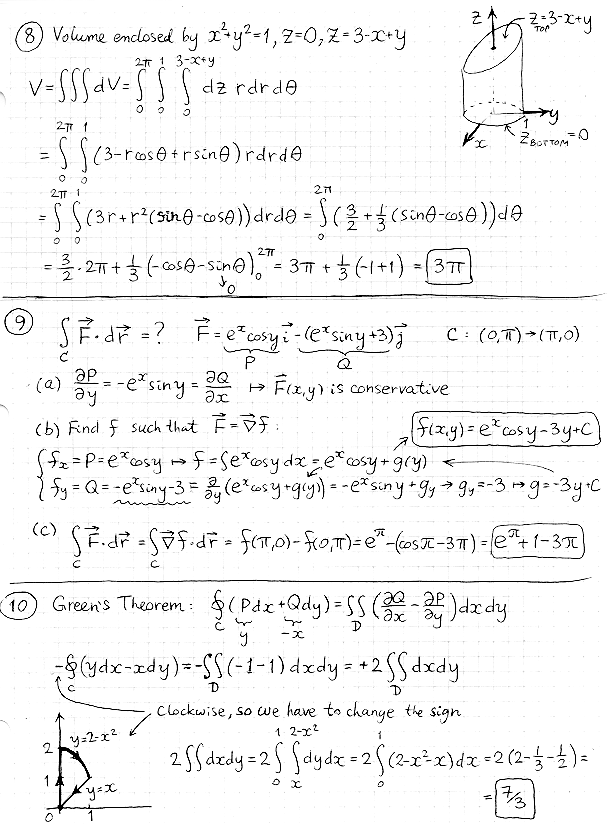 8 Volume enclosed by x²+y²=1, z=0, z=3-x+y
z
z=3-x+y
TOP
y
1
x
z_BOTTOM=0
V=∭dV=∫₀^{2π} ∫₀^{1} ∫₀^{3-x+y} dz rdrdθ
=∫₀^{2π} ∫₀^{1} (3-rcosθ+rsinθ) rdrdθ
=∫₀^{2π} ∫₀^{1} (3r+r²(sinθ-cosθ))drdθ=∫₀^{2π}(3/2+1/3(sinθ-cosθ))dθ
=3/2·2π+1/3(-cosθ-sinθ)₀^{2π}=3π+1/3(-1+1)=3π
0
9 ∫_C F⃗·dr⃗=? F⃗=e^x cosy i⃗-(e^x siny+3)j⃗ C: (0,π)→(π,0)
P Q
(a) ∂P/∂y=-e^x siny=∂Q/∂x ↦ F⃗(x,y) is conservative
(b) Find f such that F⃗=∇⃗f: f(x,y)=e^x cosy-3y+C
{f_x=P=e^x cosy ↦ f=∫e^x cosy dx=e^x cosy+g(y)
{f_y=Q=-e^x siny-3=∂/∂y(e^x cosy+g(y))=-e^x siny+g_y → g_y=-3 ↦ g=-3y+C
(c) ∫_C F⃗·dr⃗=∫_C ∇⃗f·dr⃗=f(π,0)-f(0,π)=e^π-(cosπ-3π)=e^π+1-3π
10 Green's Theorem: ∮_C(Pdx+Qdy)=∬_D(∂Q/∂x-∂P/∂y)dxdy
y -x
-∮_C(ydx-xdy)=-∬_D(-1-1)dxdy=+2∬_D dxdy
Clockwise, so we have to change the sign
y=2-x²
2
1
y=x
0 1
2∬dxdy=2∫₀^{1} ∫_x^{2-x²} dydx=2∫₀^{1}(2-x²-x)dx=2(2-1/3-1/2)=
=7/3